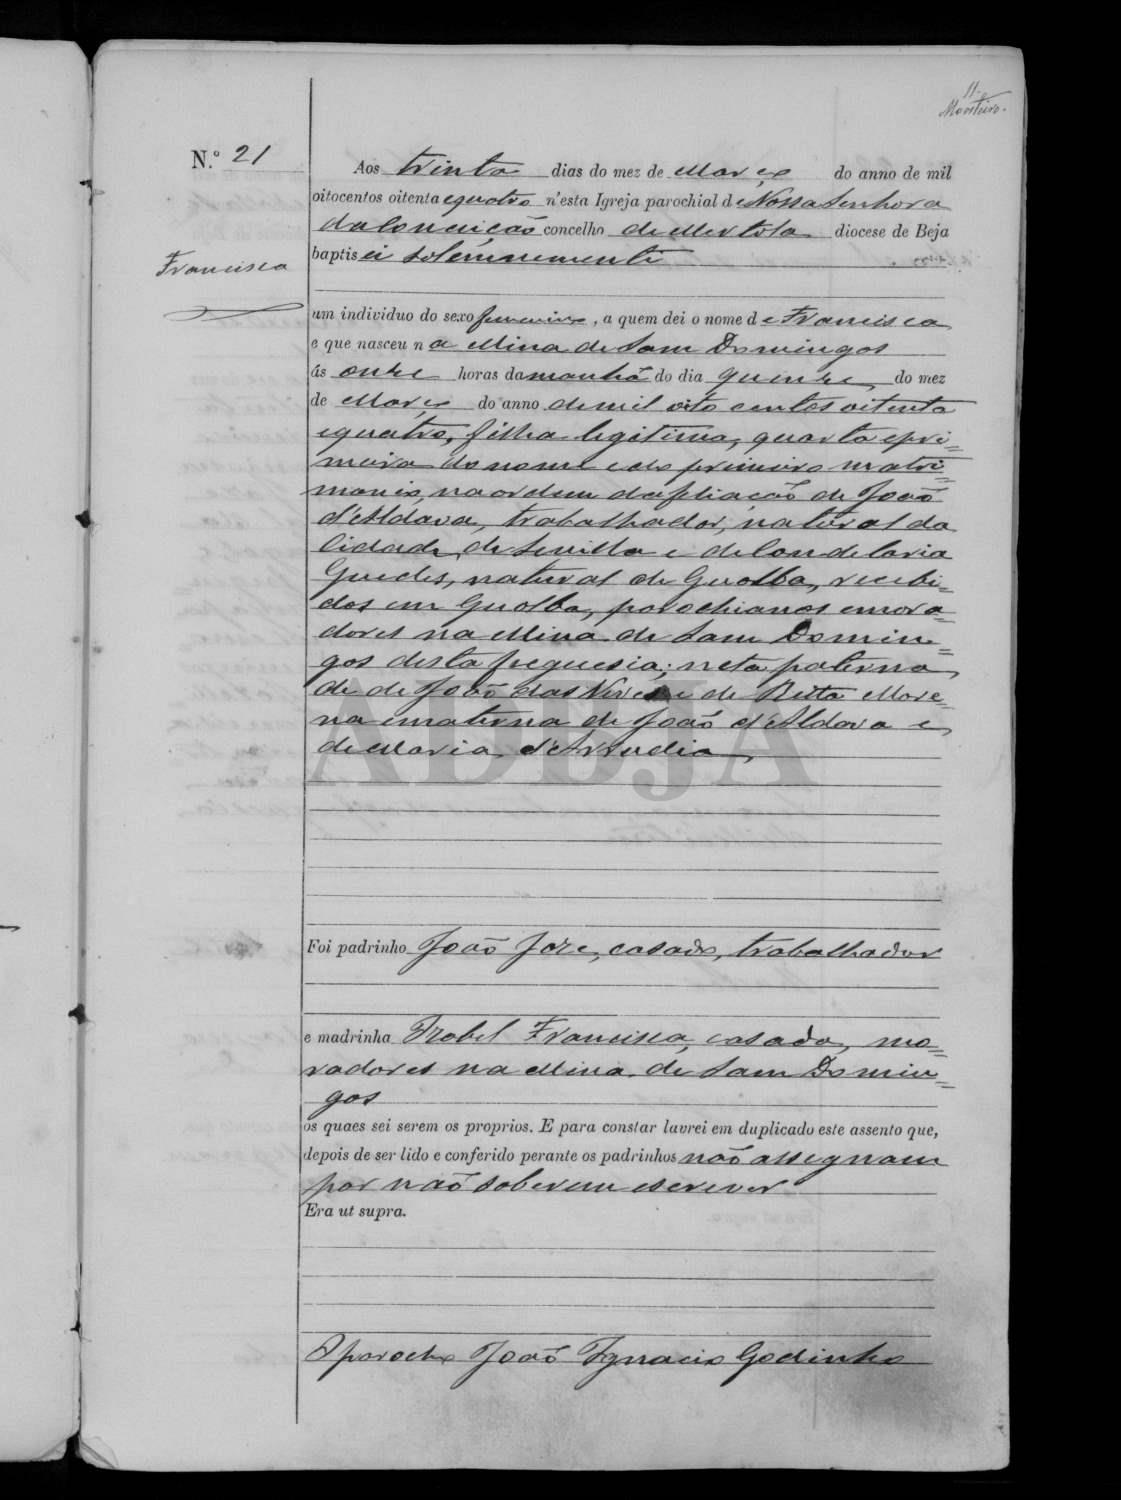 11
Monteiro.
N.º 21
Francisca
Aos trinta dias do mez de Março do anno de mil
oitocentos oitenta equatro n'esta Igreja parochial de Nossa Senhora
da Conceição concelho de Mertola diocese de Beja
baptisei solemnemente
um individuo do sexo femenino, a quem dei o nome de Francisca
e que nasceu na Mina de Sam Domingos
ás onze horas da manhã do dia quinze do mez
de Março do anno de mil oito centos oitenta
equatro, filha legitima, quarta epri=
meira do nome edo primeiro matri=
monio, na ordem da filiação de João
d'Aldava, trabalhador, natural da
Cidade de Sevilla e de Condelaria
Guedes, natural de Guolba, recebi=
dos em Guolba, parochianos emora=
dores na Mina de Sam Domin=
gos desta freguesia; neta paterna
de de João das Neves e de Ritta More=
na ematerna de João d'Aldava e
de Maria d'Arrudia
ADBJA
Foi padrinho João Joze, casado, trabalhador
e madrinha Izabel Francisca, casada, mo=
radores na Mina de Sam Domin=
gos
os quaes sei serem os proprios. E para constar lavrei em duplicado este assento que,
depois de ser lido e conferido perante os padrinhos não assegnam
por não saberem escrever
Era ut supra.
O parocho João Ignacio Godinho